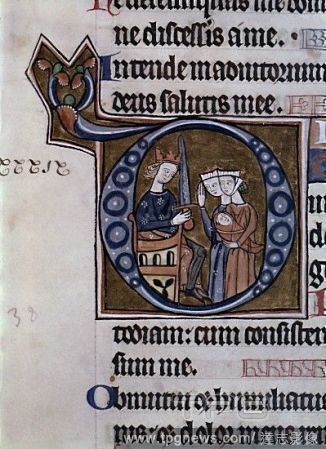 Ne derelinquas me dom
ne discessis a me.
Intende in adiutorium
deus salutis mee.
38
todiam: cum consisten
sum me.
Obmutui et humiliatus
et dolor meus
www.tpgnews.com | 達志影像